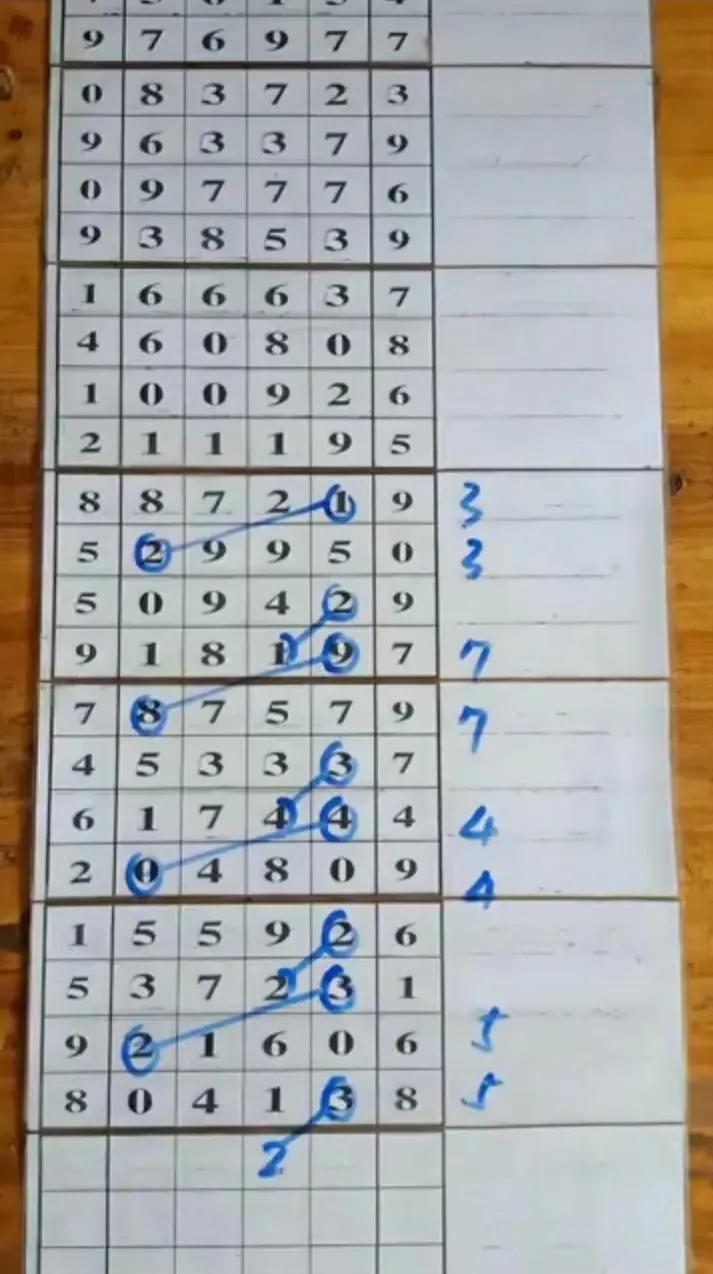 9 7 6 9 7 7
0 8 3 7 2 3
9 6 3 3 7 9
0 9 7 7 7 6
9 3 8 5 3 9
1 6 6 6 3 7
4 6 0 8 0 8
1 0 0 9 2 6
2 1 1 1 9 5
8 8 7 2 1 9 3
5 2 9 9 5 0 3
5 0 9 4 2 9
9 1 8 1 9 7 7
7 8 7 5 7 9 7
4 5 3 3 3 7
6 1 7 4 4 4 4
2 0 4 8 0 9 4
1 5 5 9 2 6
5 3 7 2 3 1
9 2 1 6 0 6 5
8 0 4 1 3 8 5
2